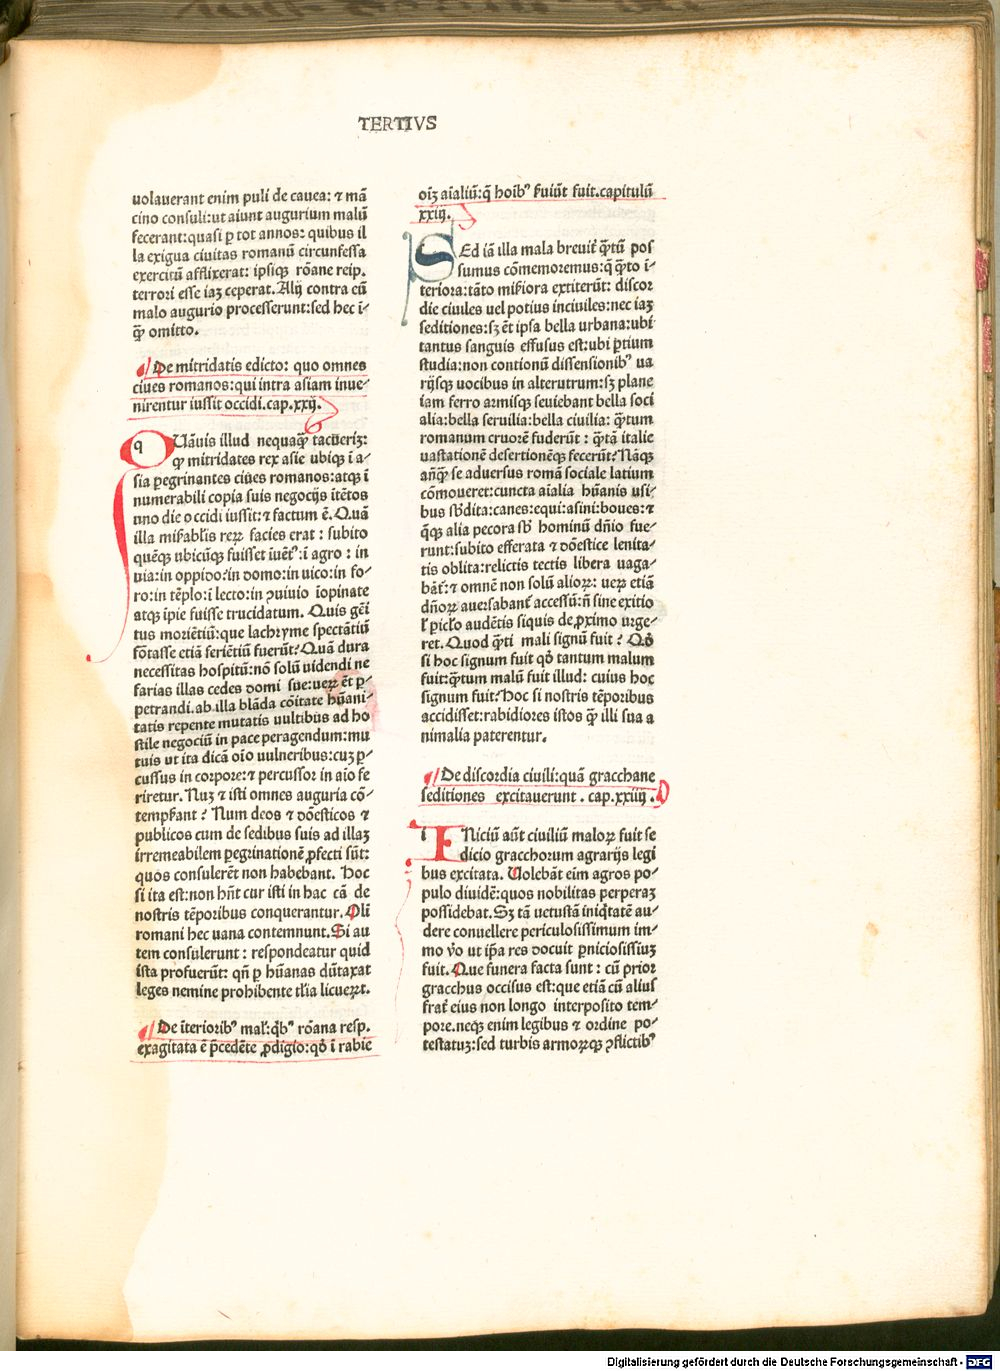 TERTIVS
uolauerant enim puli de cauea: ⁊ mā
cino consuli:ut aiunt augurium malū
fecerant:quasi ꝑ tot annos: quibus il
la exigua ciuitas romanū circunfessa
exercitū afflixerat: ipsiqꝫ rōane reip.
terrori esse iaꝫ ceperat. Alij contra cū
malo augurio processerunt:sed hec ī⸗
ꝙ̄ omitto.
De mitridatis edicto: quo omnes
ciues romanos:qui intra asiam inue⸗
nirentur iussit occidi.cap.xxij.
q Uāuis illud nequaꝙ̄ tacueriꝫ:
ꝙ mitridates rex asie ubiqꝫ ī a⸗
sia ꝑegrinantes ciues romanos:atqꝫ ī
numerabili copia suis negocijs ītētos
uno die occidi iussit:⁊ factum ē. Quā
illa mis̄abl̄is reꝝ facies erat : subito
quēqꝫ ubicūqꝫ fuisset īuēt᷒:ī agro : in
uia:in oppido:in domo:in uico:in fo⸗
ro:in tēplo:ī lecto:in ꝯuiuio īopinate
atqꝫ īpie fuisse trucidatum. Quis gēi
tus moriētiū:que lachryme spectātiū
fōtasse etiā feriētiū fuerūt? Quā dura
necessitas hospitū:nō solū uidendi ne
farias illas cedes domi sue:ueꝝ ēt ꝑ⸗
petrandi.ab illa blāda cōitate hūani⸗
tatis repente mutatis uultibus ad ho
stile negociū in pace peragendum:mu
tuis ut ita dicā oīo uulneribus:cuꝫ ꝑ⸗
cussus in corpore:⁊ percussor in aīo fe
riretur. Nuꝫ ⁊ isti omnes auguria cō⸗
temps̄ant ? Num deos ⁊ dōesticos ⁊
publicos cum de sedibus suis ad illaꝫ
irremeabilem ꝑegrinationē ꝓfecti sūt:
quos consulerēt non habebant. Hoc
si ita est:non hn̄t cur isti in hac cā de
nostris tēporibus conquerantur. Olī
romani hec uana contemnunt. Si au
tem consulerunt : respondeatur quid
ista profuerūt: qn̄ ꝑ hūanas dūtaxat
leges nemine prohibente tl̄ia licueꝝt.
De īteriorib᷒ mal᷒:qͥb᷒ rōana resp.
exagitata ē p̄cedēte ꝓdigio:qđ ī rabie
oīꝫ aīaliū:q̄ hoīb᷒ s̄uiūt fuit.capitulū
xxiij.
SEd iā illa mala breuit᷑ ꝙ̄tū pos
sumus cōmemoremus:q̄ ꝙ̄to ī⸗
teriora:tāto mis̄iora extiterūt: discor
die ciuiles uel potius inciuiles:nec iaꝫ
seditiones:sꝫ ēt ipsa bella urbana:ubi
tantus sanguis effusus est:ubi ꝑtium
studia:non contionū dissensionib᷒ ua
rijsqꝫ uocibus in alterutrum:sꝫ plane
iam ferro armisqꝫ seuiebant bella soci
alia:bella seruilia:bella ciuilia: ꝙ̄tum
romanum cruorē fuderūt : ꝙ̄tā italie
uastationē desertionēqꝫ fecerūt? Nāqꝫ
añꝙ̄ se aduersus romā sociale latium
cōmoueret:cuncta aīalia hūanis usi⸗
bus sb̄dita:canes:equi:asini:boues:⁊
q̄qꝫ alia pecora sb̄ hominū dn̄io fue⸗
runt:subito efferata ⁊ dōestice lenita⸗
tis oblita:relictis tectis libera uaga⸗
bāt᷑:⁊ omnē non solū alioꝝ: ueꝝ etiā
dn̄oꝝ auersabant᷑ accessū:n̄ sine exitio
ł picl̄o audētis siquis de ꝓximo urge⸗
ret. Quod ꝙ̄ti mali signū fuit ? Qđ
si hoc signum fuit qđ tantum malum
fuit:ꝙ̄tum malū fuit illud: cuius hoc
signum fuit? Hoc si nostris tēporibus
accidisset:rabidiores istos ꝙ̄ illi sua a
nimalia paterentur.
De discordia ciuili:quā gracchane
seditiones excitauerunt . cap.xxiiij .
i INiciū aūt ciuiliū maloꝝ fuit se
dicio gracchorum agrarijs legi
bus excitata. Uolebāt eīm agros po⸗
pulo diuidē:quos nobilitas perperaꝫ
possidebat. Sꝫ tā uetustā iniqͥtatē au⸗
dere conuellere periculosissimum im⸗
mo v̄o ut ip̄a res docuit ꝑniciosissiuꝫ
fuit. Que funera facta sunt : cū prior
gracchus occisus est:que etiā cū alius
frat᷑ eius non longo interposito tem⸗
pore.neqꝫ enim legibus ⁊ ordine po⸗
testatuꝫ:sed turbis armoꝝqꝫ ꝯflictib᷒
Digitalisierung gefördert durch die Deutsche Forschungsgemeinschaft - DFG